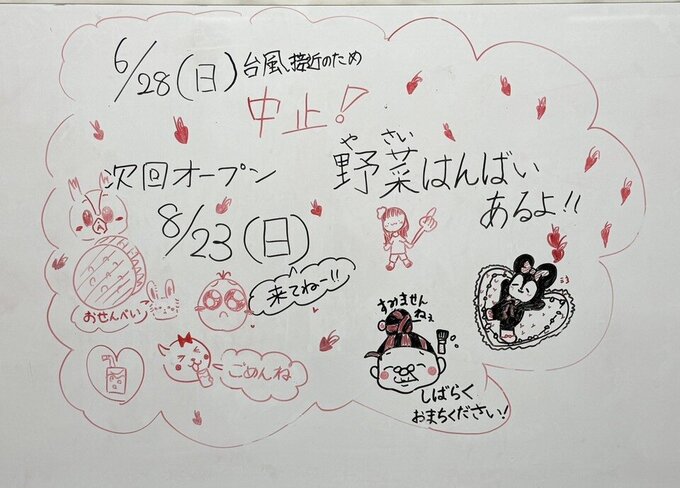 6/28(日)台風接近のため
中止!
次回オープン
8/23(日)
やさい
野菜はんばい
あるよ!!
来てねー!!
おせんべい
ごめんね
すみません
ねぇ
しばらく
おまちください!